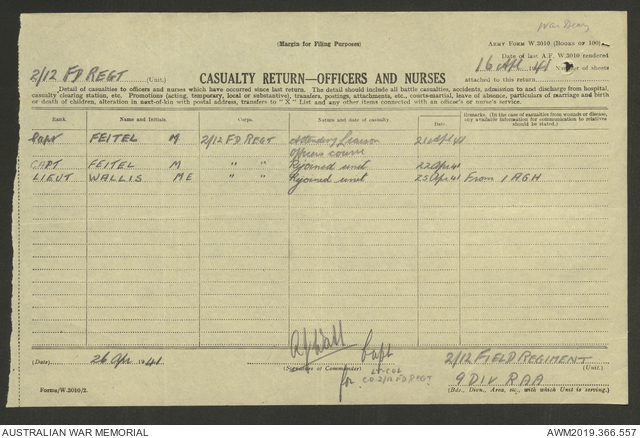 War Diary
(Margin for Filing Purposes)
ARMY FORM W.3010 (BOOKS OF 100).
Date of last A.F. W.3010 rendered
16 Apl 1941 Number of sheets
attached to this return
2/12 FD REGT (Unit.)
CASUALTY RETURN—OFFICERS AND NURSES
Detail of casualties to officers and nurses which have occurred since last return. The detail should include all battle casualties, accidents, admission to and discharge from hospital,
casualty clearing station, etc. Promotions (acting, temporary, local or substantive), transfers, postings, attachments, etc., courts-martial), leave of absence, particulars of marriage and birth
or death of children, alteration in next-of-kin with postal address, transfers to "X" List and any other items connected with an officer's or nurse's service.
Rank. Name and Initials. Corps. Nature and date of casualty. Date. Remarks. (In the case of casualties from wounds or disease, any available information for communication to relatives should be stated.)
Capt FEITEL M 2/12 FD REGT Attending Liaison 21 Apl 41
Officers course
CAPT FEITEL M " " Rejoined unit 22 Apl 41
LIEUT WALLIS M E " " Rejoined unit 25 Apr 41 From 1 AGH
(Date) 26 Apr 1941
Capt
(Signature of Commander)
for LT-COL
CO 2/12 FD REGT
2/12 FIELD REGIMENT
(Unit.)
9 DIV RAA
(Bde., Divn., Area, etc., with which Unit is serving.)
Forms/W.3010/2.
AUSTRALIAN WAR MEMORIAL
AWM2019.366.557